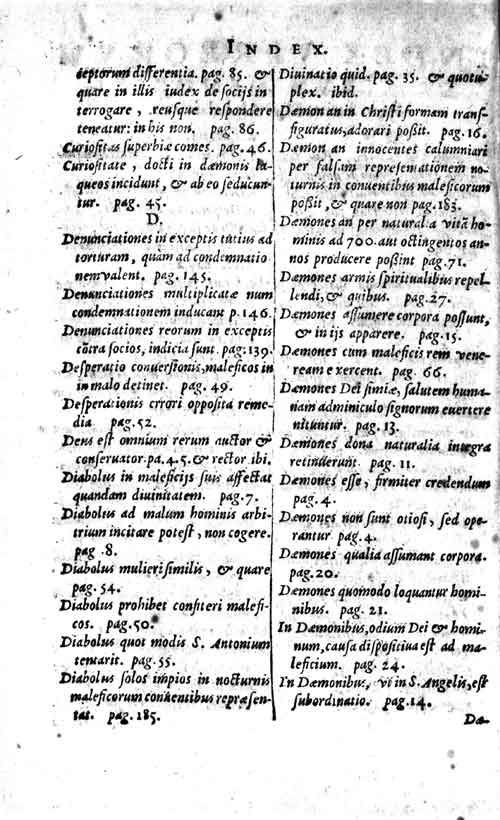 INDEX.
ceptorum differentia. pag. 85. &
quare in illis iudex de socijs in
terrogare, reusque respondere
teneatur: in his non. pag. 86.
Curiositas superbiæ comes. pag. 46.
Curiositate, docti in dæmonis la-
queos incidunt, & ab eo seducun-
tur. pag. 45.
D.
Denunciationes in exceptis tutius ad
torturam, quàm ad condemnatio
nem valent. pag. 145.
Denunciationes multiplicatæ num
condemnationem inducant p. 146.
Denunciationes reorum in exceptis
cōtra socios, indicia sunt. pag. 139.
Desperatio conuersionis, maleficos in
in malo detinet. pag. 49.
Desperationis errori opposita reme-
dia. pag. 52.
Deus est omnium rerum auctor &
conseruator. pa. 4. 5. & rector ibi.
Diabolus in maleficijs suis affectat
quandam diuinitatem. pag. 7.
Diabolus ad malum hominis arbi-
trium incitare potest, non cogere.
pag. 8.
Diabolus mulieri similis, & quare
pag. 54.
Diabolus prohibet confiteri malefi-
cos. pag. 50.
Diabolus quot modis S. Antonium
tentarit. pag. 55.
Diabolus solos impios in nocturnis
maleficorum conuentibus repræsen-
tat. pag. 185.
Diuinatio quid. pag. 35. & quotu-
plex. ibid.
Dæmon an in Christi formam trans-
figuratus, adorari poßit. pag. 16.
Dæmon an innocentes calumniari
per falsam representationem no-
turnis in conuentibus maleficorum
poßit, & quare non pag. 183.
Dæmones an per naturalia vitā ho-
minis ad 700. aut octingentos an-
nos producere poßint pag. 71.
Dæmones armis spiritualibus repel-
lendi, & quibus. pag. 27.
Dæmones assumere corpora possunt,
& in ijs apparere. pag. 15.
Dæmones cum maleficis rem vene-
ream exercent. pag. 66.
Dæmones Dei simiæ, salutem huma-
nam adminiculo signorum euertere
nituntur. pag. 13.
Dæmones dona naturalia integra
retinuerunt. pag. 11.
Dæmones esse, firmiter credendum
pag. 4.
Dæmones non sunt otiosi, sed ope-
rantur pag. 4.
Dæmones qualia assumant corpora.
pag. 20.
Dæmones quomodo loquantur homi-
nibus. pag. 21.
In Dæmonibus, odium Dei & homi-
num, causa dispositiua est ad ma-
leficium. pag. 24.
In Dæmonibus, vt in S. Angelis, est
subordinatio. pag. 14.
Dæ-